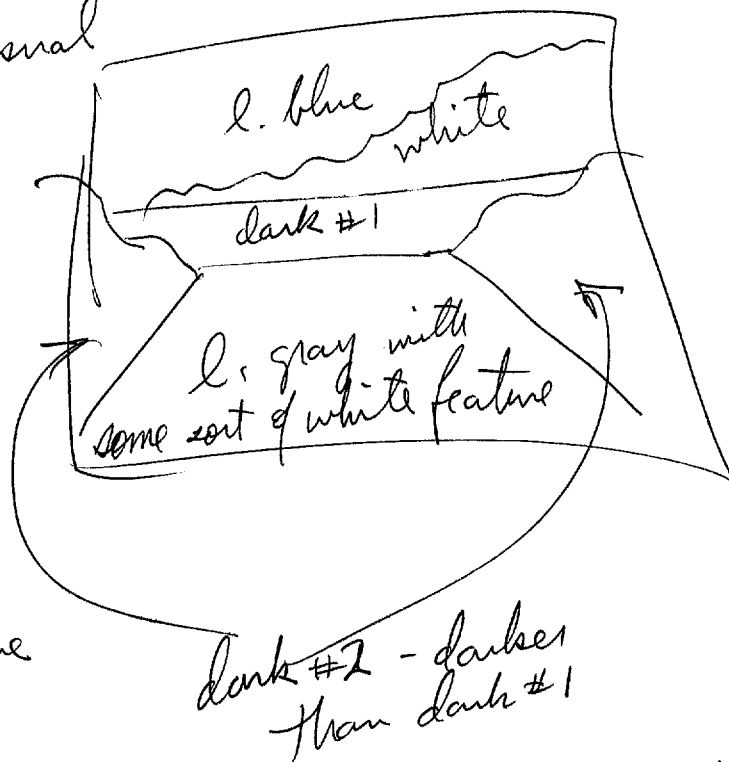 l. blue
white
dark #1
l. gray with
some sort of white feature
dark #2 - darker
than dark #1